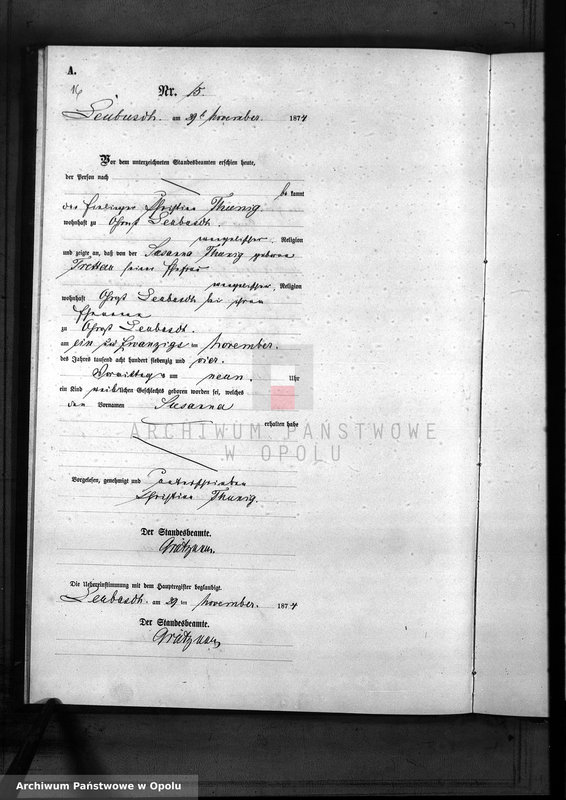 A.
16
Nr. 15.
Leubusch. am 29t November. 1874
Vor dem unterzeichneten Standesbeamten erschien heute,
der Person nach
be kannt
der Christian Thunig.
wohnhaft zu Leubusch.
evangelischer. Religion
und zeigte an, daß von der Susanna Thunig geborene
seiner Ehefrau
evangelischer, Religion
wohnhaft Leubusch bei ihrem
Ehemanne
zu Leubusch.
am ein und zwanzigs ten November.
des Jahres tausend acht hundert siebenzig und vier.
Vormittags um neun. Uhr
ein Kind weiblichen Geschlechts geboren worden sei, welches
den Vornamen Susanna
erhalten habe
Vorgelesen, genehmigt und unterschrieben
Christian Thunig.
Der Standesbeamte.
Grätzner.
Die Uebereinstimmung mit dem Hauptregister beglaubigt.
Leubusch. am 29 ten November. 1874
Der Standesbeamte.
Grätzner
ARCHIWUM PAŃSTWOWE
W OPOLU
Archiwum Państwowe w Opolu